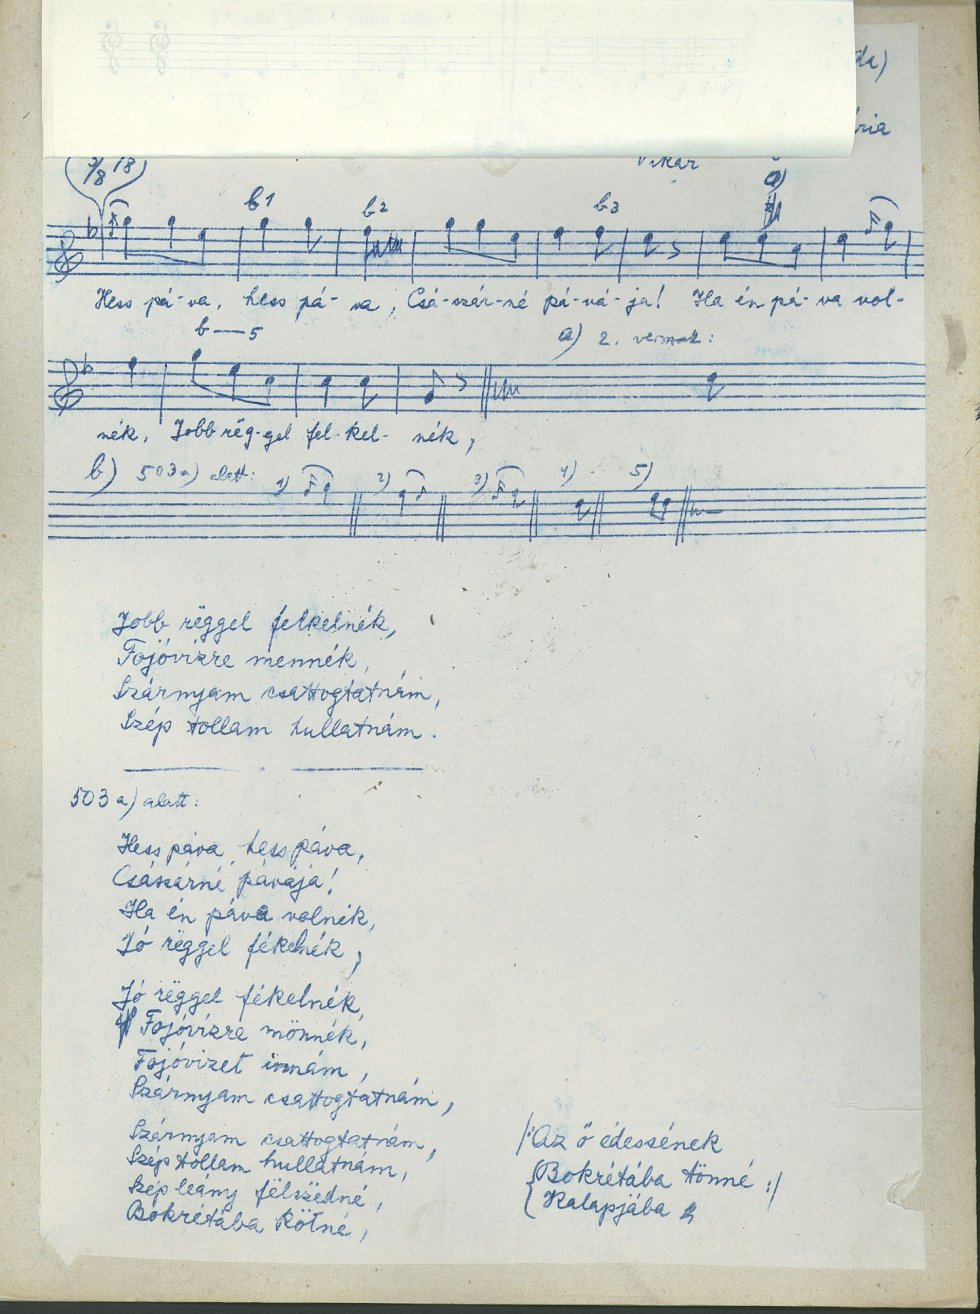 Vikár
7/8
b1 b2 b3 a)
Hess pá-va, hess pá-va, Csá-szár-né pá-vá-ja! Ha én pá-va vol-
b—5 a) 2. versszak:
nék, Jobb rëg-gel fel-kel-nék,
b) 503 a) alatt: 1) 2) 3) 4) 5)
Jobb rëggel felkelnék,
Fojóvízre mennék,
Szárnyam csattogtatnám,
Szép tollam hullatnám.
503 a) alatt:
Hess páva, hess páva,
Császárné pávája!
Ha én páva volnék,
Jó rëggel fékelnék,
Jó rëggel fékelnék,
Fojóvízre mönnék,
Fojóvizet innám,
Szárnyam csattogtatnám,
Szárnyam csattogtatnám,
Szép tollam hullatnám,
Szép leány fëlszëdné,
Bokrétába kötné,
/: Az ő édessének
Bokrétába tönné :/
Kalapjába